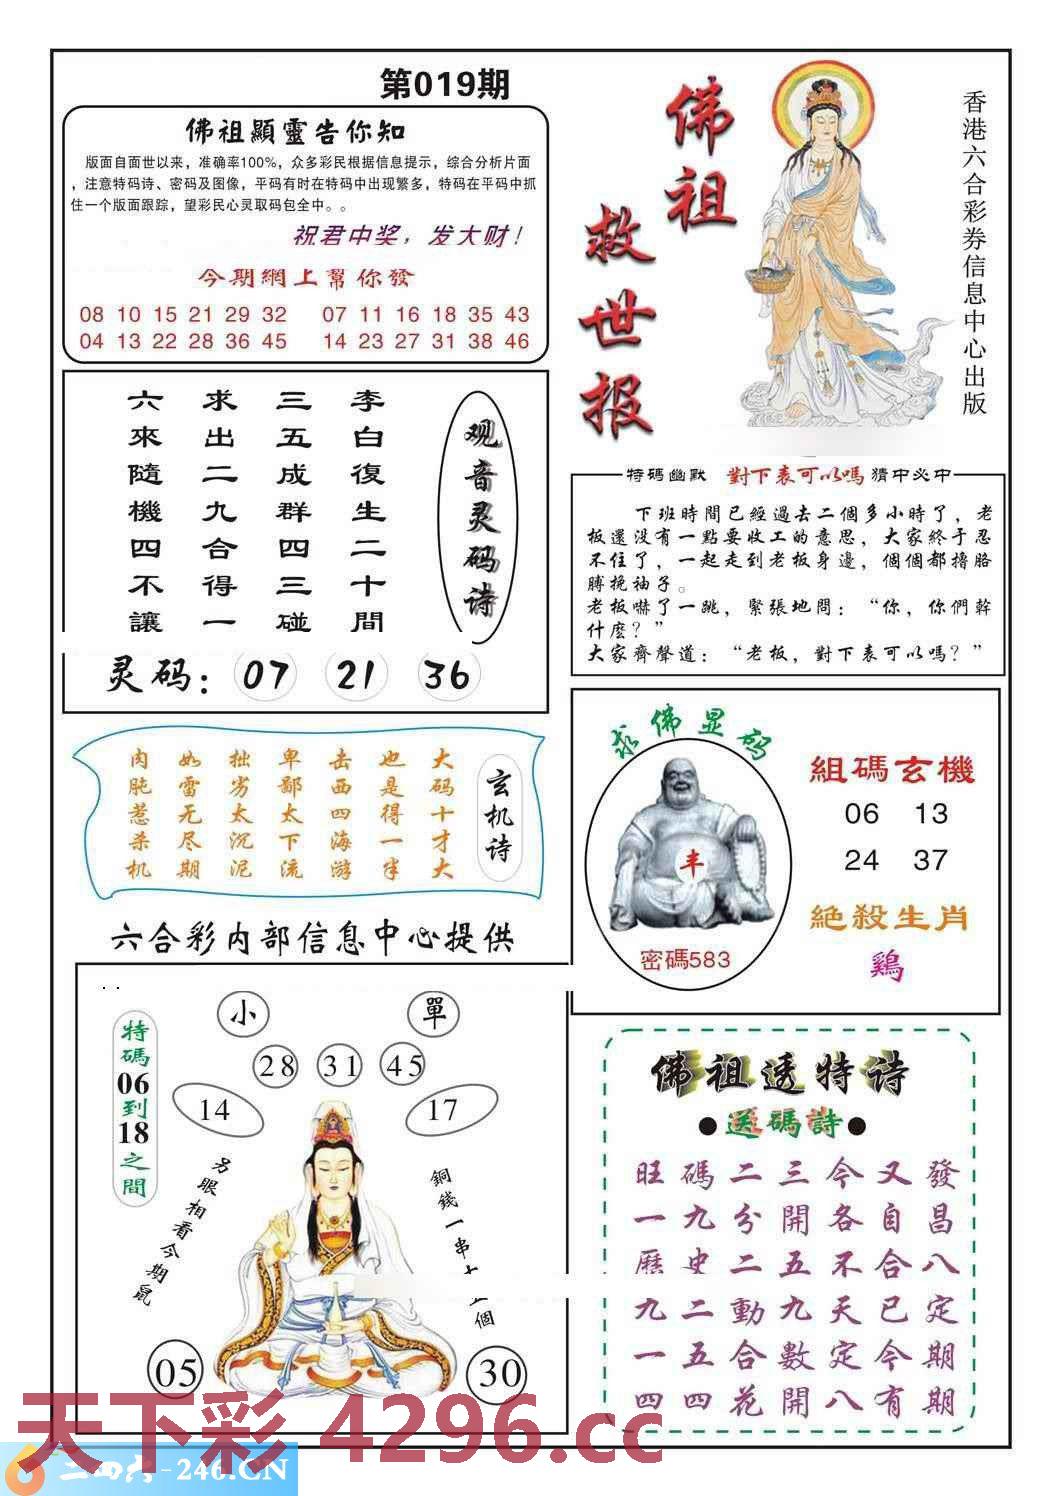 第019期
佛祖顯靈告你知
版面自面世以来，准确率100%，众多彩民根据信息提示，综合分析片面
，注意特码诗、密码及图像，平码有时在特码中出现繁多，特码在平码中抓
住一个版面跟踪，望彩民心灵取码包全中。。
祝君中奖，发大财！
今期網上幫你發
08 10 15 21 29 32 07 11 16 18 35 43
04 13 22 28 36 45 14 23 27 31 38 46
佛祖
救世报
香港六合彩券信息中心出版
观音灵码诗
李白復生二十間
三五成群四三碰
求出二九合得一
六來隨機四不讓
灵码：07 21 36
特碼幽默 對下表可以嗎 猜中必中
下班時間已經過去二個多小時了，老
板還没有一點要收工的意思，大家終于忍
不住了，一起走到老板身邊，個個都擼胳
膊挽袖子。
老板嚇了一跳，緊張地問：“你，你們幹
什麽？”
大家齊聲道：“老板，對下表可以嗎？”
玄机诗
大码十才大
也是得一半
击西四海游
卑鄙太下流
拙劣太沉泥
如雷无尽期
肉肫惹杀机
求佛显码
丰
密碼583
組碼玄機
06 13
24 37
絕殺生肖
鷄
六合彩内部信息中心提供
小 單
28 31 45
14 17
特碼06到18之間
另眼相看今期鼠
銅錢一串十五個
05 30
佛祖透特诗
●送碼詩●
旺碼二三今又發
一九分開各自昌
歷史二五不合八
九二動九天已定
一五合數定今期
四四花開八有期
天下彩 4296.cc
二四六-246.CN